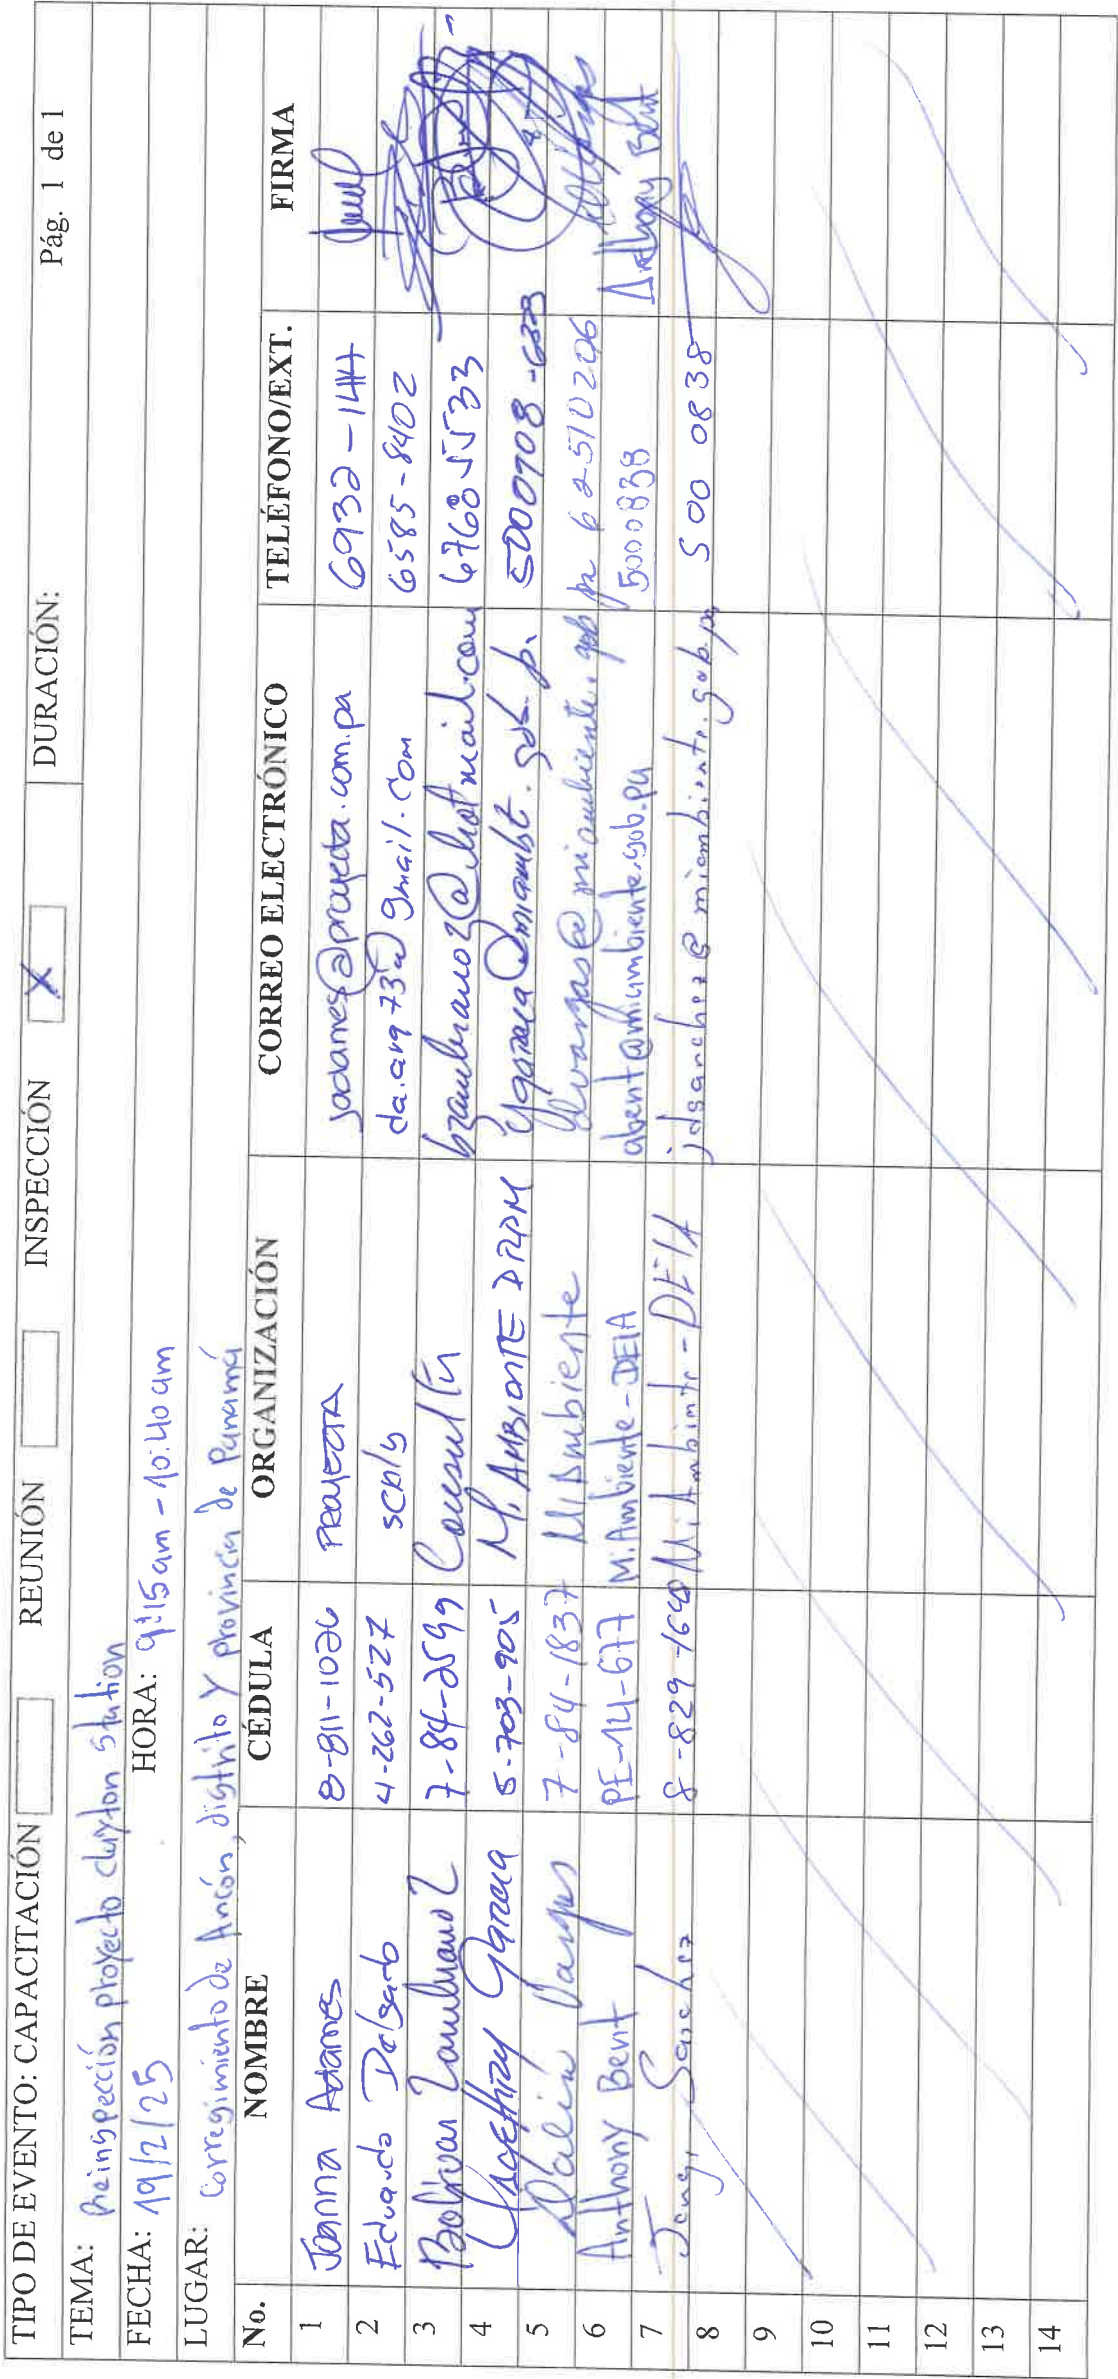 TIPO DE EVENTO: CAPACITACIÓN REUNIÓN INSPECCIÓN X DURACIÓN: Pág. 1 de 1
TEMA: Preinspección proyecto clayton station
FECHA: 19/2/25 HORA: 9:15am - 10:40am
LUGAR: Corregimiento de Ancón, distrito y provincia de Panamá
No. NOMBRE CÉDULA ORGANIZACIÓN CORREO ELECTRÓNICO TELÉFONO/EXT. FIRMA
1 Joanna Adames 8-811-1026 PROYECTA jadames@proyecta.com.pa 6932-1414
2 Eduardo Delgado 4-262-527 da.arq73@gmail.com 6585-8402
3 Bolívar Zambrano Z 7-84-2599 Consultor bzambranoz@hotmail.com 67685533
4 García 8-703-905 Mi AMBIENTE DRPM 5000908
5 Dalia Vargas 7-84-1837 MiAmbiente dvargas@miambiente.gob.pa 62510206
6 Anthony Bent PE-14-677 MiAmbiente-DEIA abent@miambiente.gob.pa 5000838 Anthony Bent
7 Sánchez 8-829-1640 MiAmbiente-DEIA jdsanchez@miambiente.gob.pa 500 0838
8
9
10
11
12
13
14